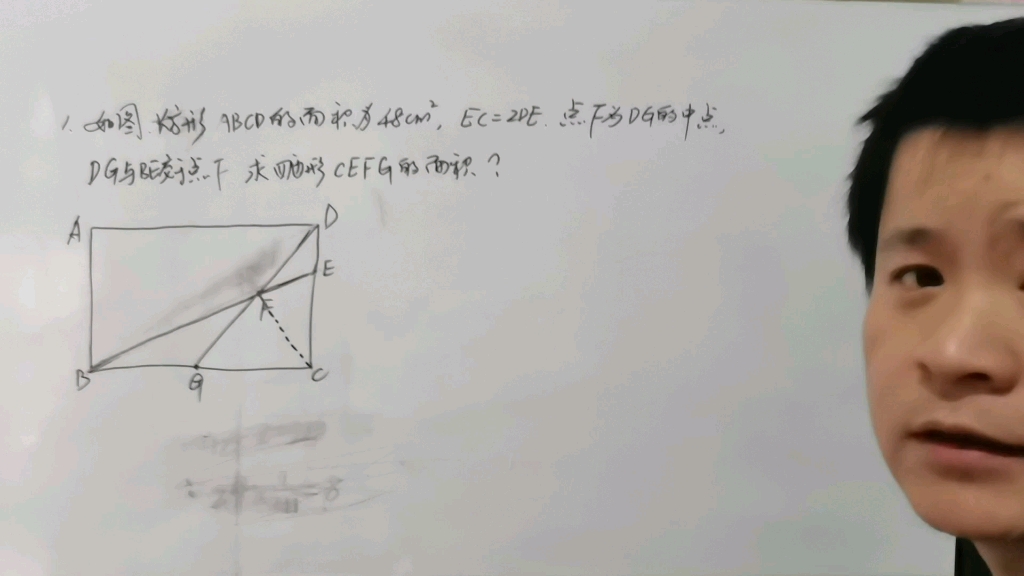 1. 如图 长方形 ABCD的面积为48cm², EC=2DE. 点F为DG的中点,
DG与BE交于点F 求四边形CEFG的面积?
A
D
E
F
B
G
C